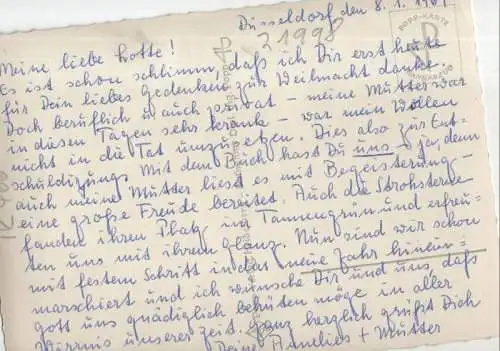 Düsseldorf den 8.1.
Meine liebe Lotte!
Es ist schon schlimm, daß ich Dir erst heute
für Dein liebes Gedenken zur Weihnacht danke.
Doch beruflich u auch privat - meine Mutter war
in diesen Tagen sehr krank - war mein Wollen
nicht in die Tat umzusetzen. Dies also zur Ent-
schuldigung. Mit dem Buch hast Du uns - ja, denn
auch meine Mutter liest es mit Begeisterung -
eine große Freude bereitet. Auch die Strohsterne
fanden ihren Platz im Tannengrün und erfreu-
ten uns mit ihrem Glanz. Nun sind wir schon
mit festem Schritt in das neue Jahr hinein-
marschiert und ich wünsche Dir und uns, daß
Gott uns gnädiglich behüten möge in aller
Wirrnis unserer Zeit. Ganz herzlich grüßt Dich
Deine Annelies + Mutter
21998
POPP-KARTE